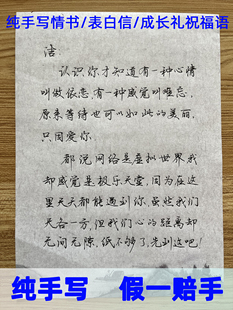 纯手写情书/表白信/成长礼祝福语
洁:
认识你才知道有一种心情
叫做依恋,有一种感觉叫难忘,
原来等待也可以如此的美丽,
只因爱你。
都说网络是虚拟世界,我
却感觉是极乐天堂,因为在这
里天天都能遇到你,虽然我们
天各一方,但我们心的距离却
无间无隙,纸不够了,先到这吧!
纯手写 假一赔手